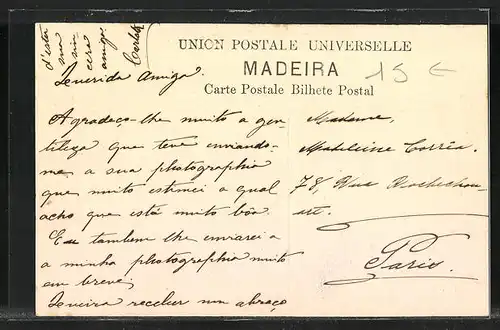 UNION POSTALE UNIVERSELLE
MADEIRA
Carte Postale Bilhete Postal
15 €
Querida Amiga.
Agradeço-lhe muito a gen-
tileza que teve enviando-
me a sua photographia
que muito estimei a qual
acho que está muito bôa.
Eu tambem lhe enviarei a
a minha photographia muito
em breve,
Queira receber um abraço
d'esta
sua
sin
cera
amiga
Madame,
Madeleine Corrêa.
78, Rua Rochechou-
art.
Paris.